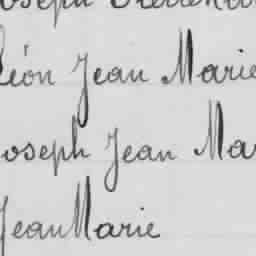 Joseph
Léon Jean Marie
Joseph Jean Mar
Jean Marie